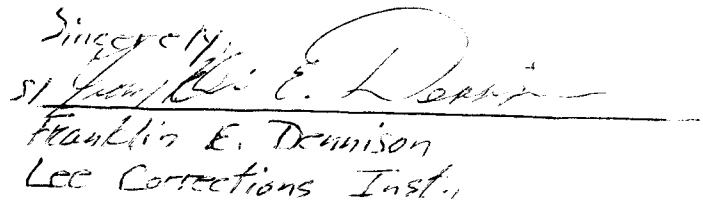 Sincerely,
s/ Franklin E. Dennison
Franklin E. Dennison
Lee Corrections Inst.,